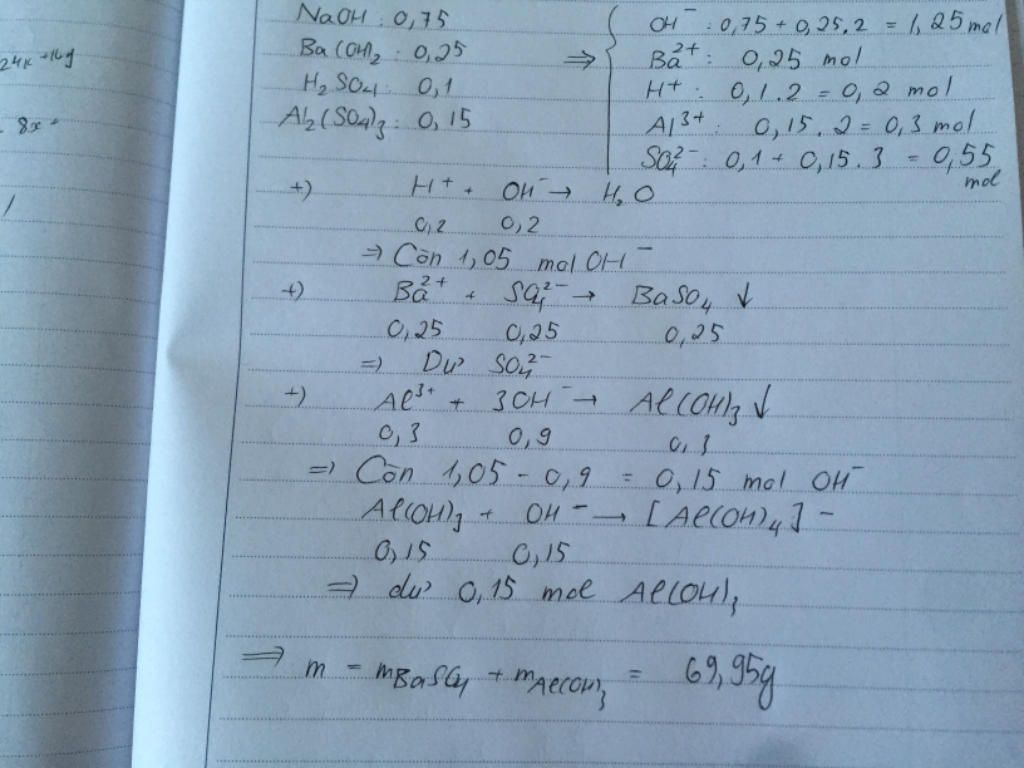 24x +16y
8x =
NaOH : 0,75
Ba(OH)₂ : 0,25
H₂SO₄ : 0,1
Al₂(SO₄)₃ : 0,15
⇒ { OH⁻ : 0,75 + 0,25.2 = 1,25 mol
Ba²⁺ : 0,25 mol
H⁺ : 0,1.2 = 0,2 mol
Al³⁺ : 0,15.2 = 0,3 mol
SO₄²⁻ : 0,1 + 0,15.3 = 0,55
mol
+) H⁺ + OH⁻ → H₂O
0,2 0,2
⇒ Còn 1,05 mol OH⁻
+) Ba²⁺ + SO₄²⁻ → BaSO₄ ↓
0,25 0,25 0,25
⇒ Dư SO₄²⁻
+) Al³⁺ + 3OH⁻ → Al(OH)₃ ↓
0,3 0,9 0,3
⇒ Còn 1,05 - 0,9 = 0,15 mol OH⁻
Al(OH)₃ + OH⁻ → [Al(OH)₄]⁻
0,15 0,15
⇒ dư 0,15 mol Al(OH)₃
⇒ m = mBaSO₄ + mAl(OH)₃ = 69,95g